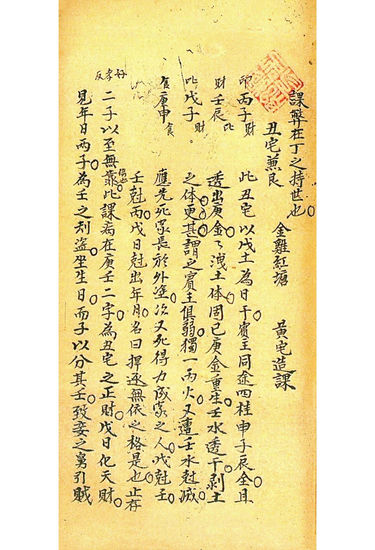 課弊在丁之持世也
丑宅兼艮　金雞紅塘　黃宅造課
印丙子財　此丑宅以戊土為日干賓主同途四柱申子辰全且
財壬辰比　透出庚金之洩土体固已庚金重生壬水透干剥土
比戊子財　之体更甚謂之賓主俱弱獨一丙火又遭壬水尅滅
食庚申食　應先死家長於外塗次又死得力成家之人戊尅壬
壬尅丙戊日尅出年月名曰择逐無依之格是也止存
好孝反　二子以至無靠此課若在庚壬二字為丑宅之正財戊日化天財
見年日兩子為壬之刦盗坐生日而子以分其壬致妾之舅引賊